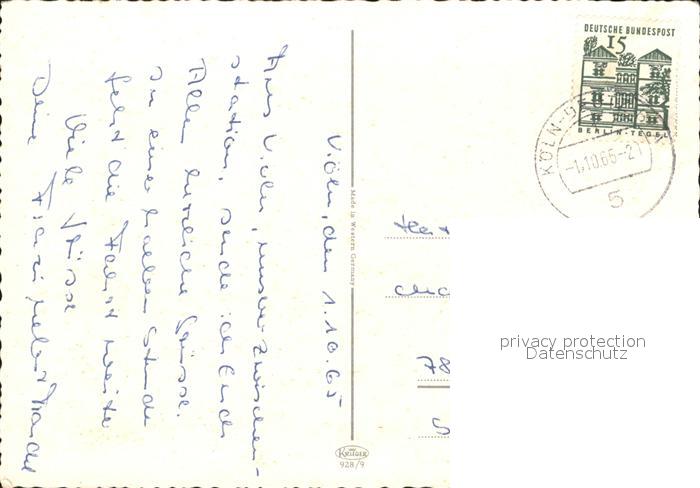 Köln, den 1.10.65
Aus Köln, unser Zwischen-
station, sende ich Euch
Allen herzliche Grüsse.
In einer halben Stunde
geht die Fahrt weiter
Viele Grüsse
Deine
Made in Western Germany
KRÜGER
928/9
DEUTSCHE BUNDESPOST
15
BERLIN-TEGEL
KÖLN-DE
-1.10.65-21
5
privacy protection
Datenschutz